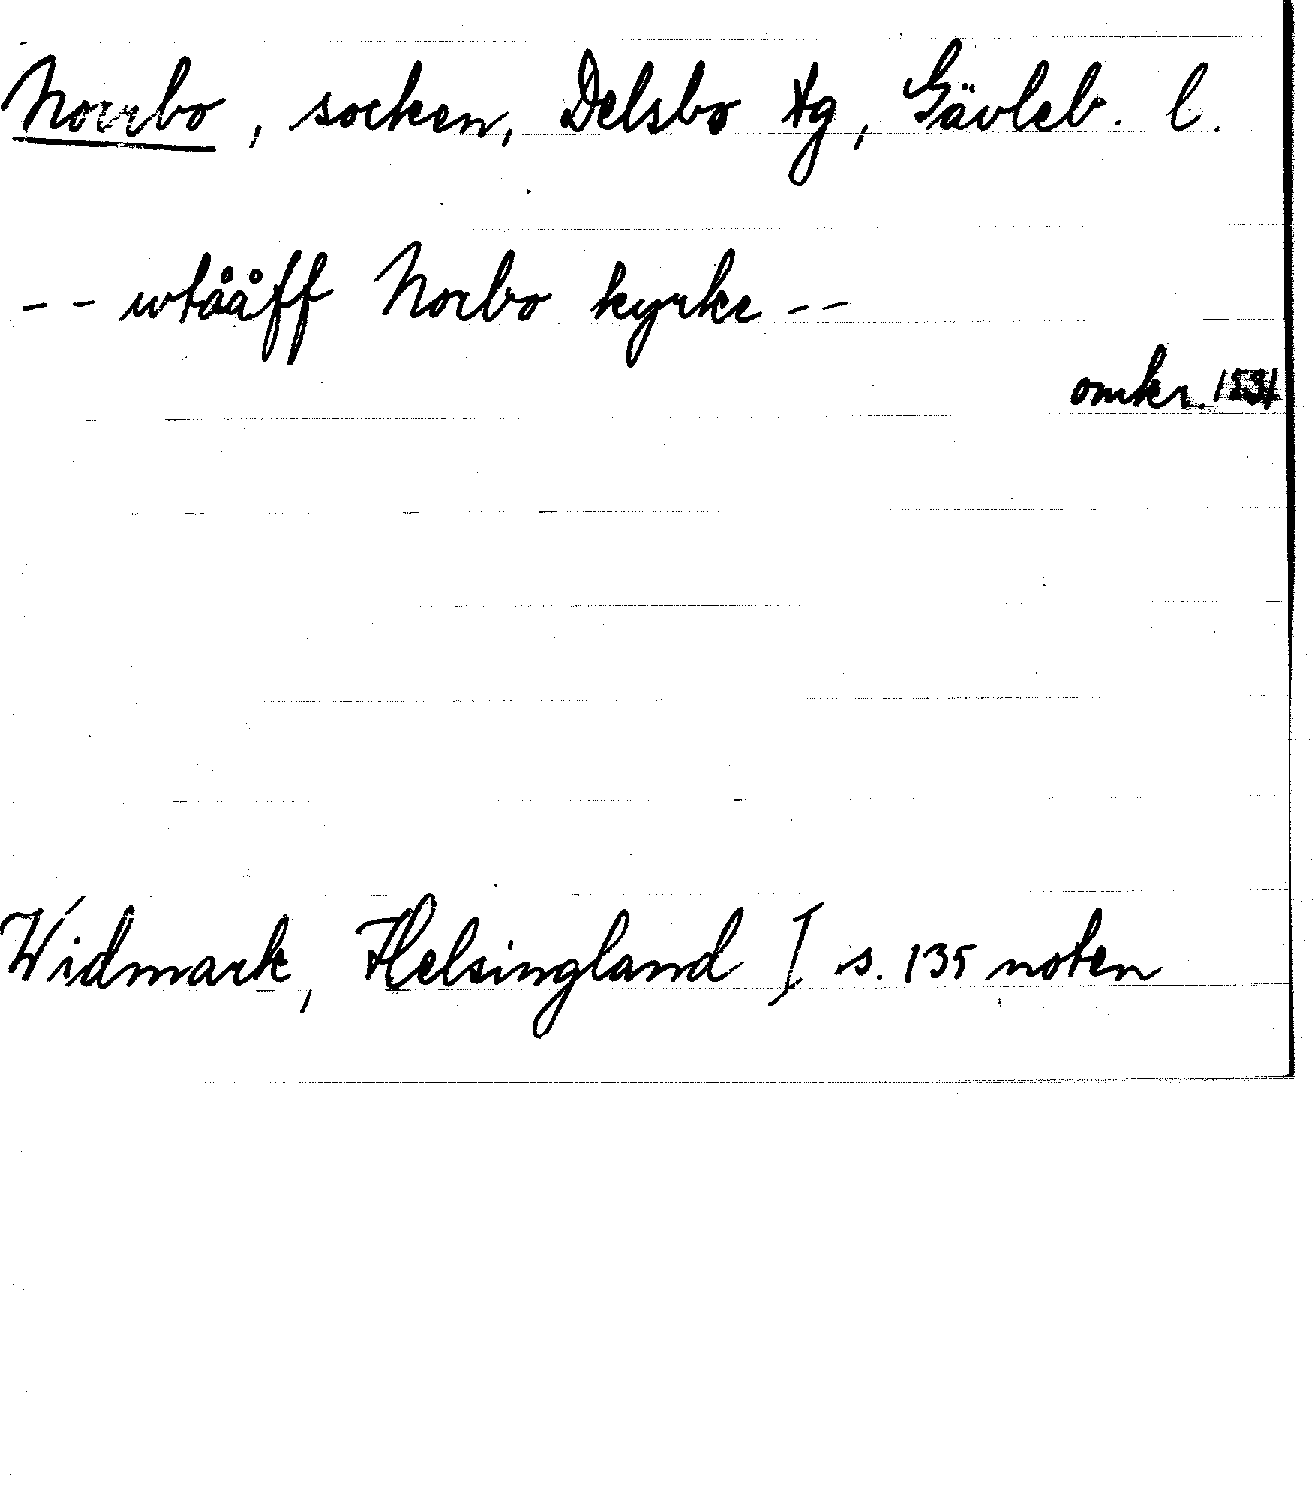 Norrbo, socken, Delsbo tg, Gävleb. l.
-- wtååff Norbo kyrke --
omkr. 1531
Widmark, Helsingland I s. 135 noten